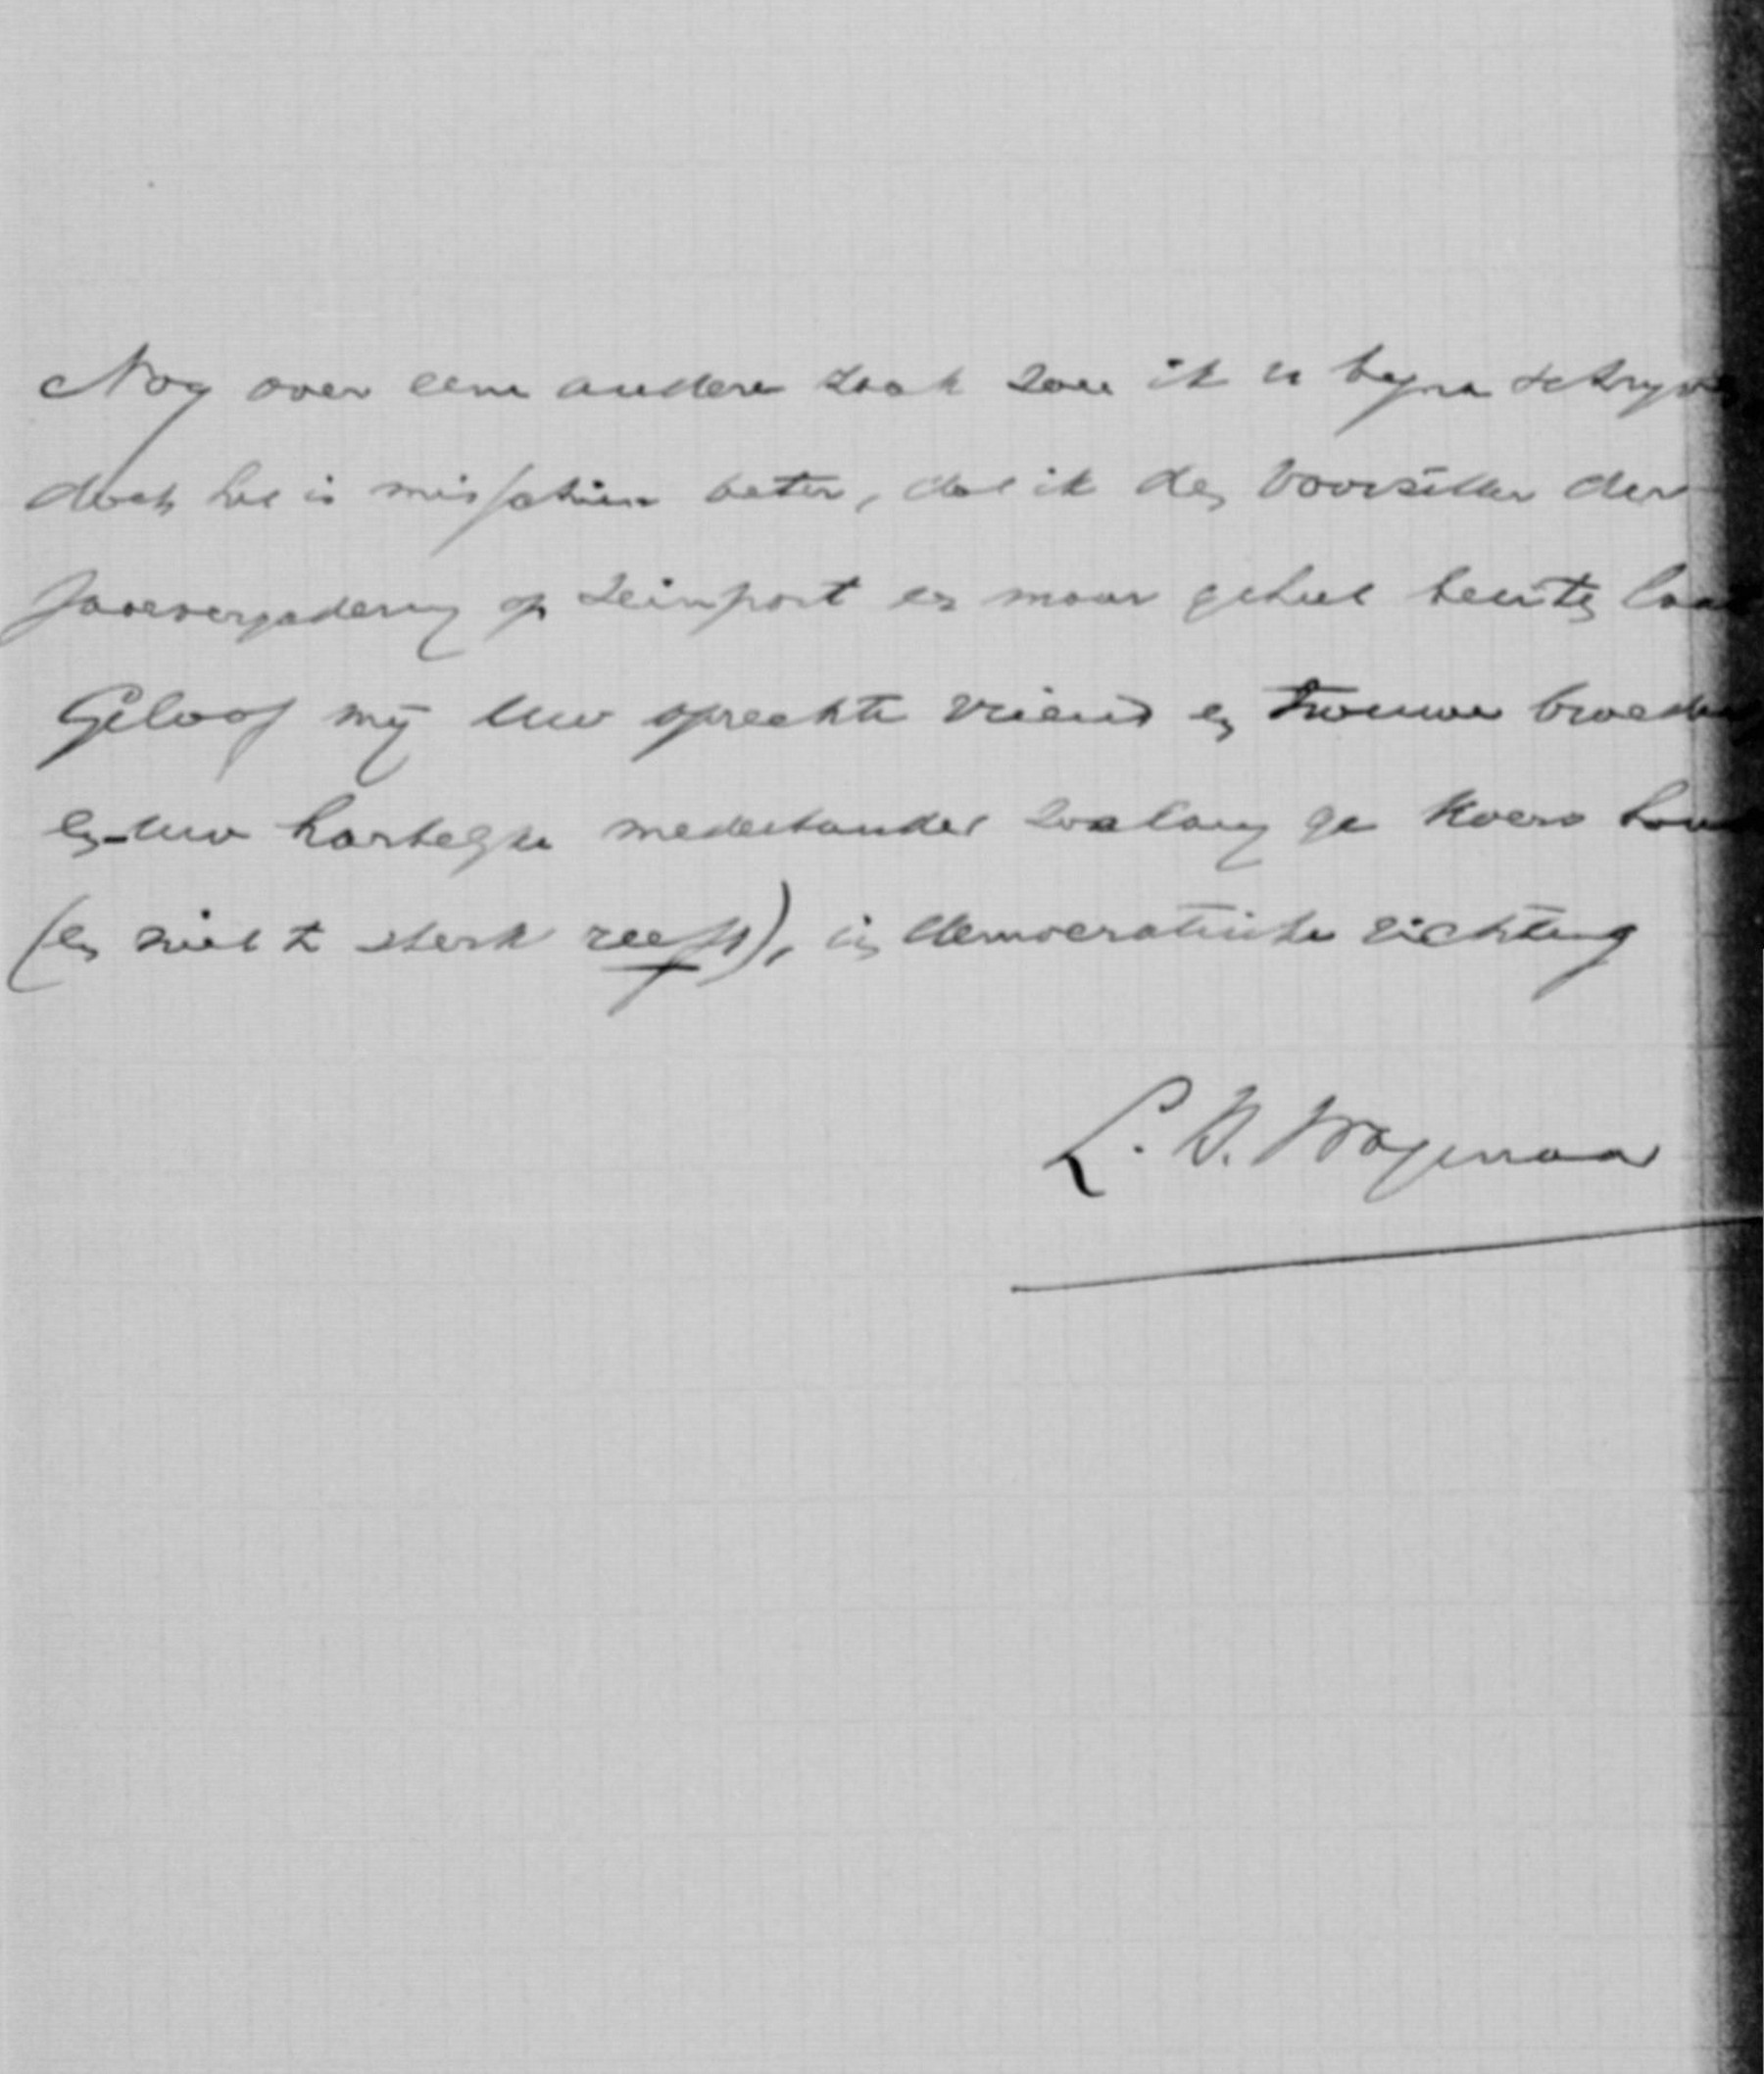 Nog over eene andere zaak zou ik u bijna schrijve
doch het is misschien beter, dat ik den voorzitter der
Jaarvergadering op Zeinpost er maar geheel buiten laa
Geloof mij Uw oprechte vriend en trouwe broede
en uw hartelijke medestander zoolang ge koers hou
(en niet te sterk reeft), in democratische richting
L. W. Wagenaar